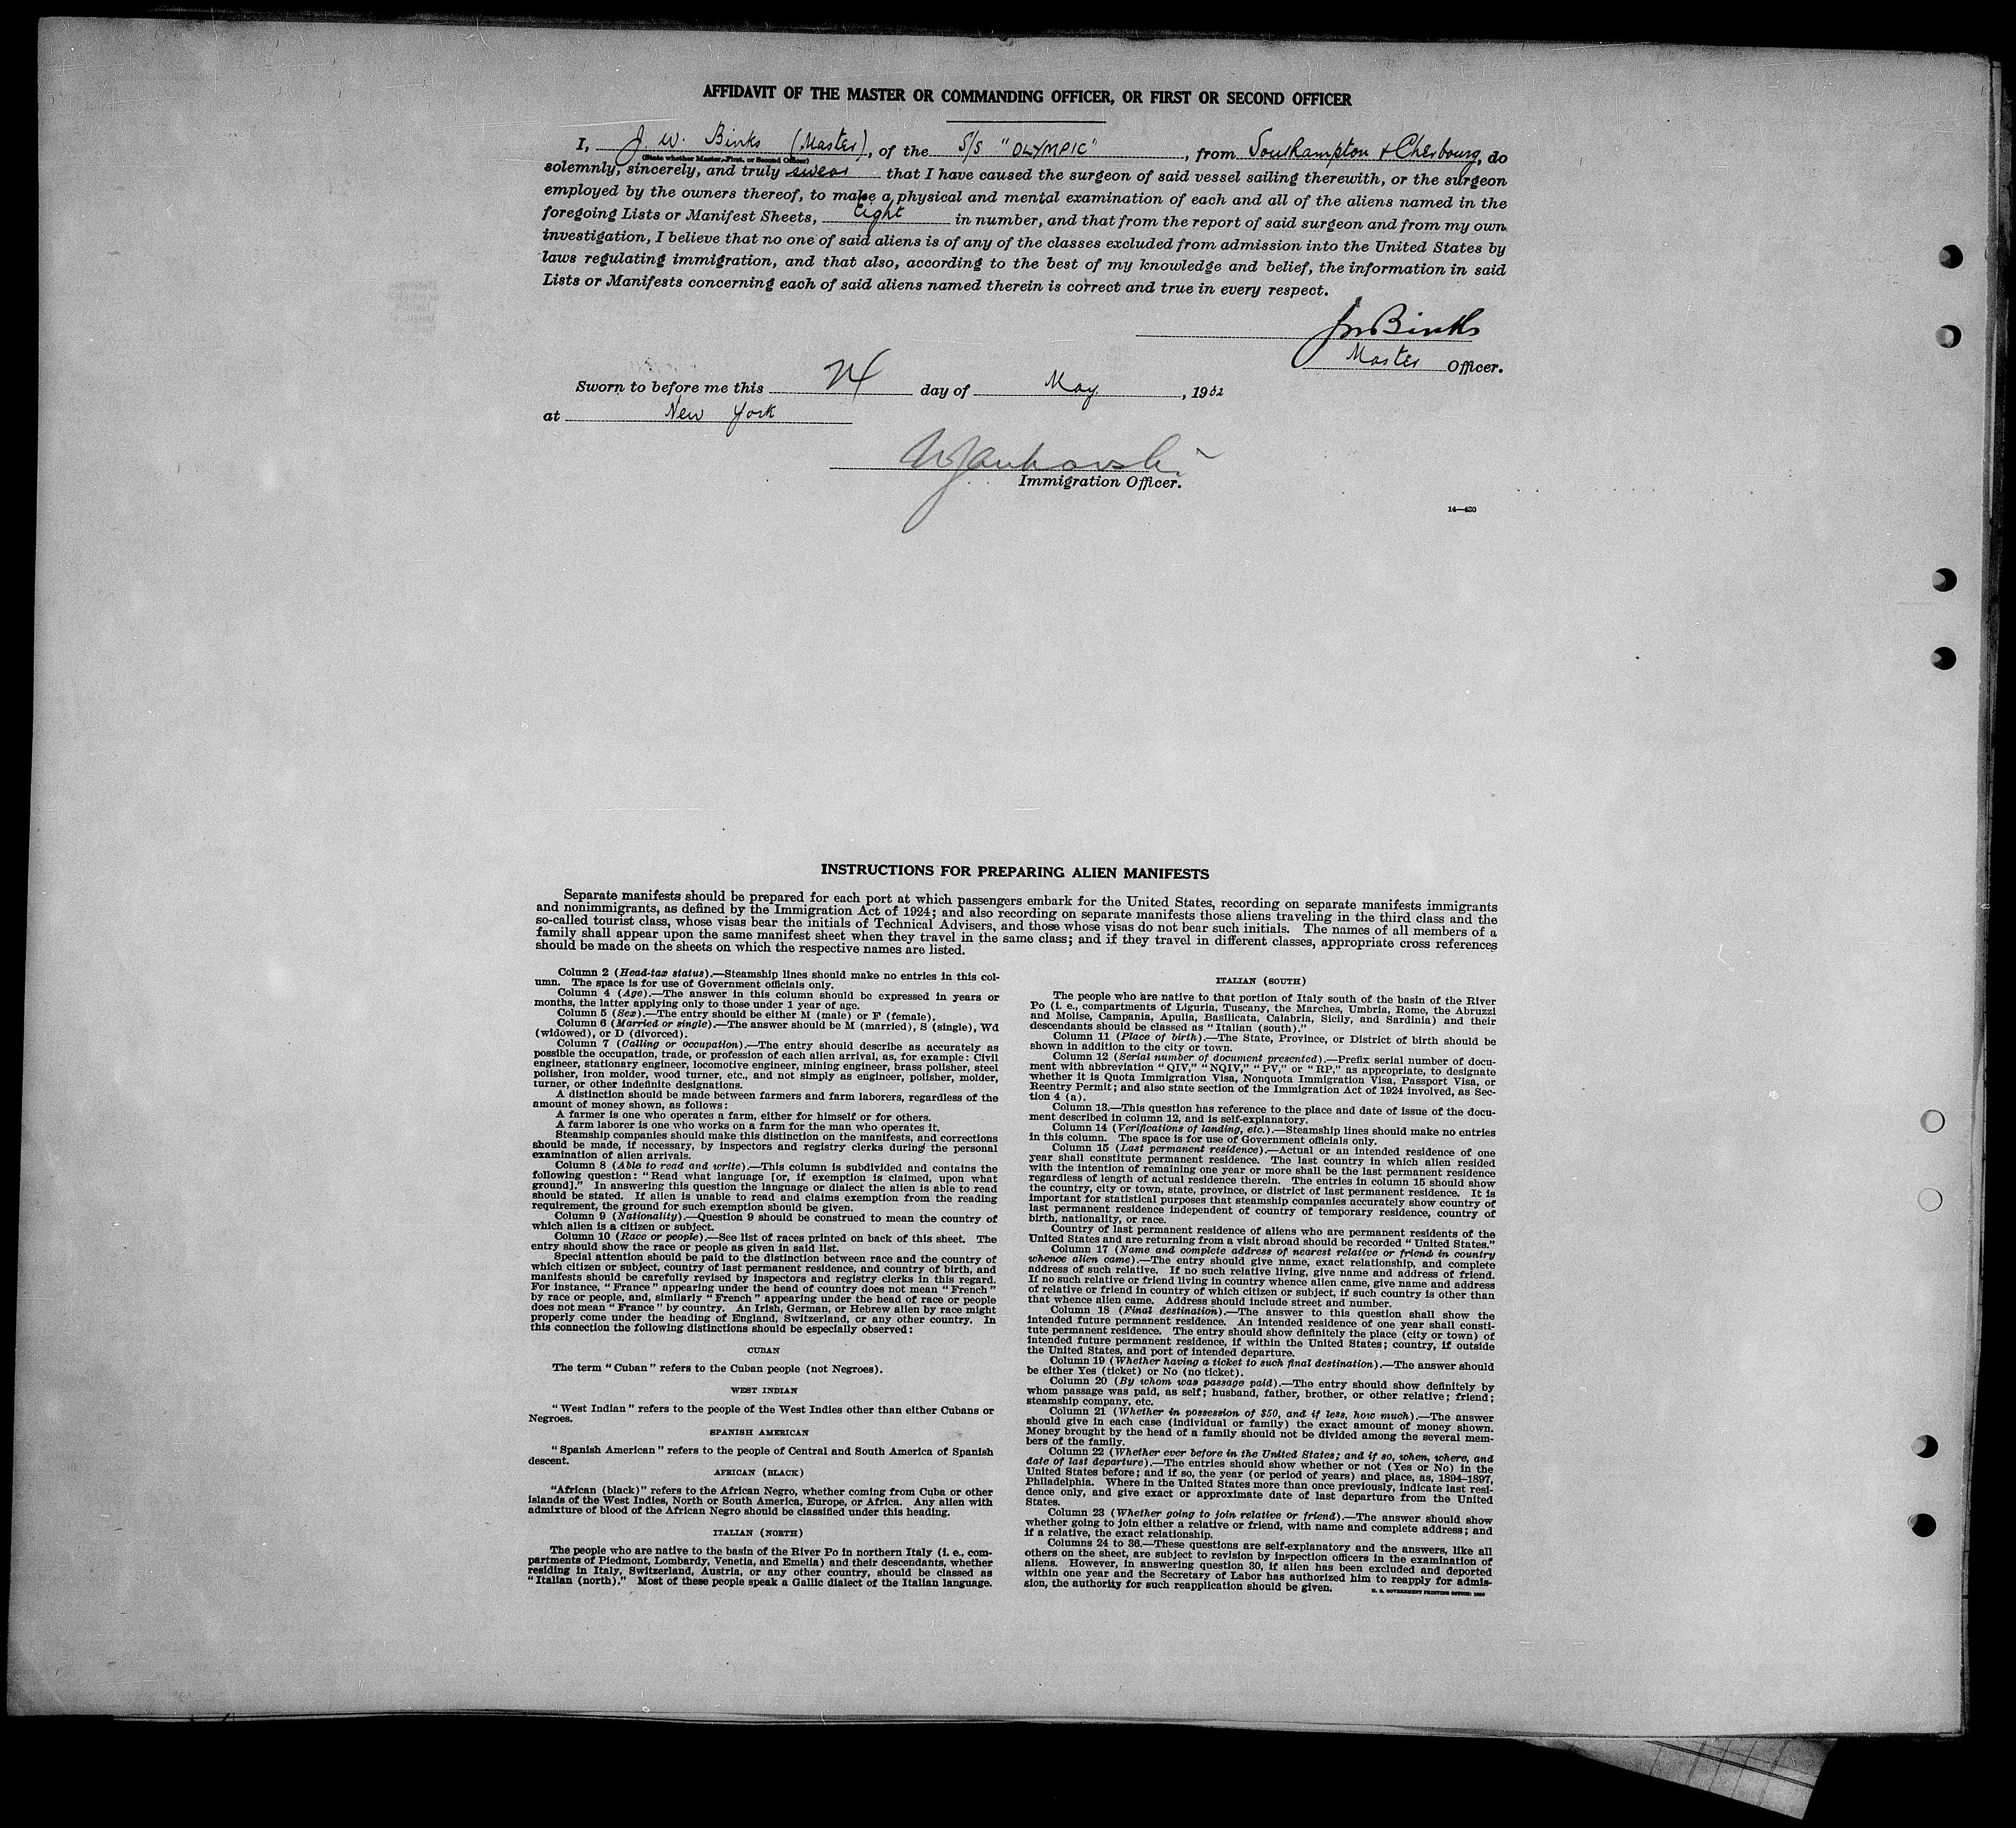 AFFIDAVIT OF THE MASTER OR COMMANDING OFFICER, OR FIRST OR SECOND OFFICER
I, J. W. Binks (Master), of the S/S "OLYMPIC", from Southampton & Cherbourg, do
(State whether Master, First, or Second Officer)
solemnly, sincerely, and truly swear that I have caused the surgeon of said vessel sailing therewith, or the surgeon
employed by the owners thereof, to make a physical and mental examination of each and all of the aliens named in the
foregoing Lists or Manifest Sheets, Eight in number, and that from the report of said surgeon and from my own
investigation, I believe that no one of said aliens is of any of the classes excluded from admission into the United States by
laws regulating immigration, and that also, according to the best of my knowledge and belief, the information in said
Lists or Manifests concerning each of said aliens named therein is correct and true in every respect.
JW Binks
Master Officer.
Sworn to before me this 24 day of May, 1932
at New York
Immigration Officer.
14—430
INSTRUCTIONS FOR PREPARING ALIEN MANIFESTS
Separate manifests should be prepared for each port at which passengers embark for the United States, recording on separate manifests immigrants
and nonimmigrants, as defined by the Immigration Act of 1924; and also recording on separate manifests those aliens traveling in the third class and the
so-called tourist class, whose visas bear the initials of Technical Advisers, and those whose visas do not bear such initials. The names of all members of a
family shall appear upon the same manifest sheet when they travel in the same class; and if they travel in different classes, appropriate cross references
should be made on the sheets on which the respective names are listed.
Column 2 (Head-tax status).—Steamship lines should make no entries in this col-
umn. The space is for use of Government officials only.
Column 4 (Age).—The answer in this column should be expressed in years or
months, the latter applying only to those under 1 year of age.
Column 5 (Sex).—The entry should be either M (male) or F (female).
Column 6 (Married or single).—The answer should be M (married), S (single), Wd
(widowed), or D (divorced).
Column 7 (Calling or occupation).—The entry should describe as accurately as
possible the occupation, trade, or profession of each alien arrival, as, for example: Civil
engineer, stationary engineer, locomotive engineer, mining engineer, brass polisher, steel
polisher, iron molder, wood turner, etc., and not simply as engineer, polisher, molder,
turner, or other indefinite designations.
A distinction should be made between farmers and farm laborers, regardless of the
amount of money shown, as follows:
A farmer is one who operates a farm, either for himself or for others.
A farm laborer is one who works on a farm for the man who operates it.
Steamship companies should make this distinction on the manifests, and corrections
should be made, if necessary, by inspectors and registry clerks during the personal
examination of alien arrivals.
Column 8 (Able to read and write).—This column is subdivided and contains the
following question: "Read what language [or, if exemption is claimed, upon what
ground]." In answering this question the language or dialect the alien is able to read
should be stated. If alien is unable to read and claims exemption from the reading
requirement, the ground for such exemption should be given.
Column 9 (Nationality).—Question 9 should be construed to mean the country of
which alien is a citizen or subject.
Column 10 (Race or people).—See list of races printed on back of this sheet. The
entry should show the race or people as given in said list.
Special attention should be paid to the distinction between race and the country of
which citizen or subject, country of last permanent residence, and country of birth, and
manifests should be carefully revised by inspectors and registry clerks in this regard.
For instance, "France" appearing under the head of country does not mean "French"
by race or people, and, similarly "French" appearing under the head of race or people
does not mean "France" by country. An Irish, German, or Hebrew alien by race might
properly come under the heading of England, Switzerland, or any other country. In
this connection the following distinctions should be especially observed:
CUBAN
The term "Cuban" refers to the Cuban people (not Negroes).
WEST INDIAN
"West Indian" refers to the people of the West Indies other than either Cubans or
Negroes.
SPANISH AMERICAN
"Spanish American" refers to the people of Central and South America of Spanish
descent.
AFRICAN (BLACK)
"African (black)" refers to the African Negro, whether coming from Cuba or other
islands of the West Indies, North or South America, Europe, or Africa. Any alien with
admixture of blood of the African Negro should be classified under this heading.
ITALIAN (NORTH)
The people who are native to the basin of the River Po in northern Italy (i. e., com-
partments of Piedmont, Lombardy, Venetia, and Emelia) and their descendants, whether
residing in Italy, Switzerland, Austria, or any other country, should be classed as
"Italian (north)." Most of these people speak a Gallic dialect of the Italian language.
ITALIAN (SOUTH)
The people who are native to that portion of Italy south of the basin of the River
Po (i. e., compartments of Liguria, Tuscany, the Marches, Umbria, Rome, the Abruzzi
and Molise, Campania, Apulia, Basilicata, Calabria, Sicily, and Sardinia) and their
descendants should be classed as "Italian (south)."
Column 11 (Place of birth).—The State, Province, or District of birth should be
shown in addition to the city or town.
Column 12 (Serial number of document presented).—Prefix serial number of docu-
ment with abbreviation "QIV," "NQIV," "PV," or "RP," as appropriate, to designate
whether it is Quota Immigration Visa, Nonquota Immigration Visa, Passport Visa, or
Reentry Permit; and also state section of the Immigration Act of 1924 involved, as Sec-
tion 4 (a).
Column 13.—This question has reference to the place and date of issue of the docu-
ment described in column 12, and is self-explanatory.
Column 14 (Verifications of landing, etc.).—Steamship lines should make no entries
in this column. The space is for use of Government officials only.
Column 15 (Last permanent residence).—Actual or an intended residence of one
year shall constitute permanent residence. The last country in which alien resided
with the intention of remaining one year or more shall be the last permanent residence
regardless of length of actual residence therein. The entries in column 15 should show
the country, city or town, state, province, or district of last permanent residence. It is
important for statistical purposes that steamship companies accurately show country of
last permanent residence independent of country of temporary residence, country of
birth, nationality, or race.
Country of last permanent residence of aliens who are permanent residents of the
United States and are returning from a visit abroad should be recorded "United States."
Column 17 (Name and complete address of nearest relative or friend in country
whence alien came).—The entry should give name, exact relationship, and complete
address of such relative. If no such relative living, give name and address of friend.
If no such relative or friend living in country whence alien came, give name and address
of relative or friend in country of which citizen or subject, if such country is other than
that whence alien came. Address should include street and number.
Column 18 (Final destination).—The answer to this question shall show the
intended future permanent residence. An intended residence of one year shall consti-
tute permanent residence. The entry should show definitely the place (city or town) of
intended future permanent residence, if within the United States; country, if outside
the United States, and port of intended departure.
Column 19 (Whether having a ticket to such final destination).—The answer should
be either Yes (ticket) or No (no ticket).
Column 20 (By whom was passage paid).—The entry should show definitely by
whom passage was paid, as self; husband, father, brother, or other relative; friend;
steamship company, etc.
Column 21 (Whether in possession of $50, and if less, how much).—The answer
should give in each case (individual or family) the exact amount of money shown.
Money brought by the head of a family should not be divided among the several mem-
bers of the family.
Column 22 (Whether ever before in the United States; and if so, when, where, and
date of last departure).—The entries should show whether or not (Yes or No) in the
United States before; and if so, the year (or period of years) and place, as, 1894–1897,
Philadelphia. Where in the United States more than once previously, indicate last resi-
dence only, and give exact or approximate date of last departure from the United
States.
Column 23 (Whether going to join relative or friend).—The answer should show
whether going to join either a relative or friend, with name and complete address; and
if a relative, the exact relationship.
Columns 24 to 36.—These questions are self-explanatory and the answers, like all
others on the sheet, are subject to revision by inspection officers in the examination of
aliens. However, in answering question 30, if alien has been excluded and deported
within one year and the Secretary of Labor has authorized him to reapply for admis-
sion, the authority for such reapplication should be given.
U. S. GOVERNMENT PRINTING OFFICE: